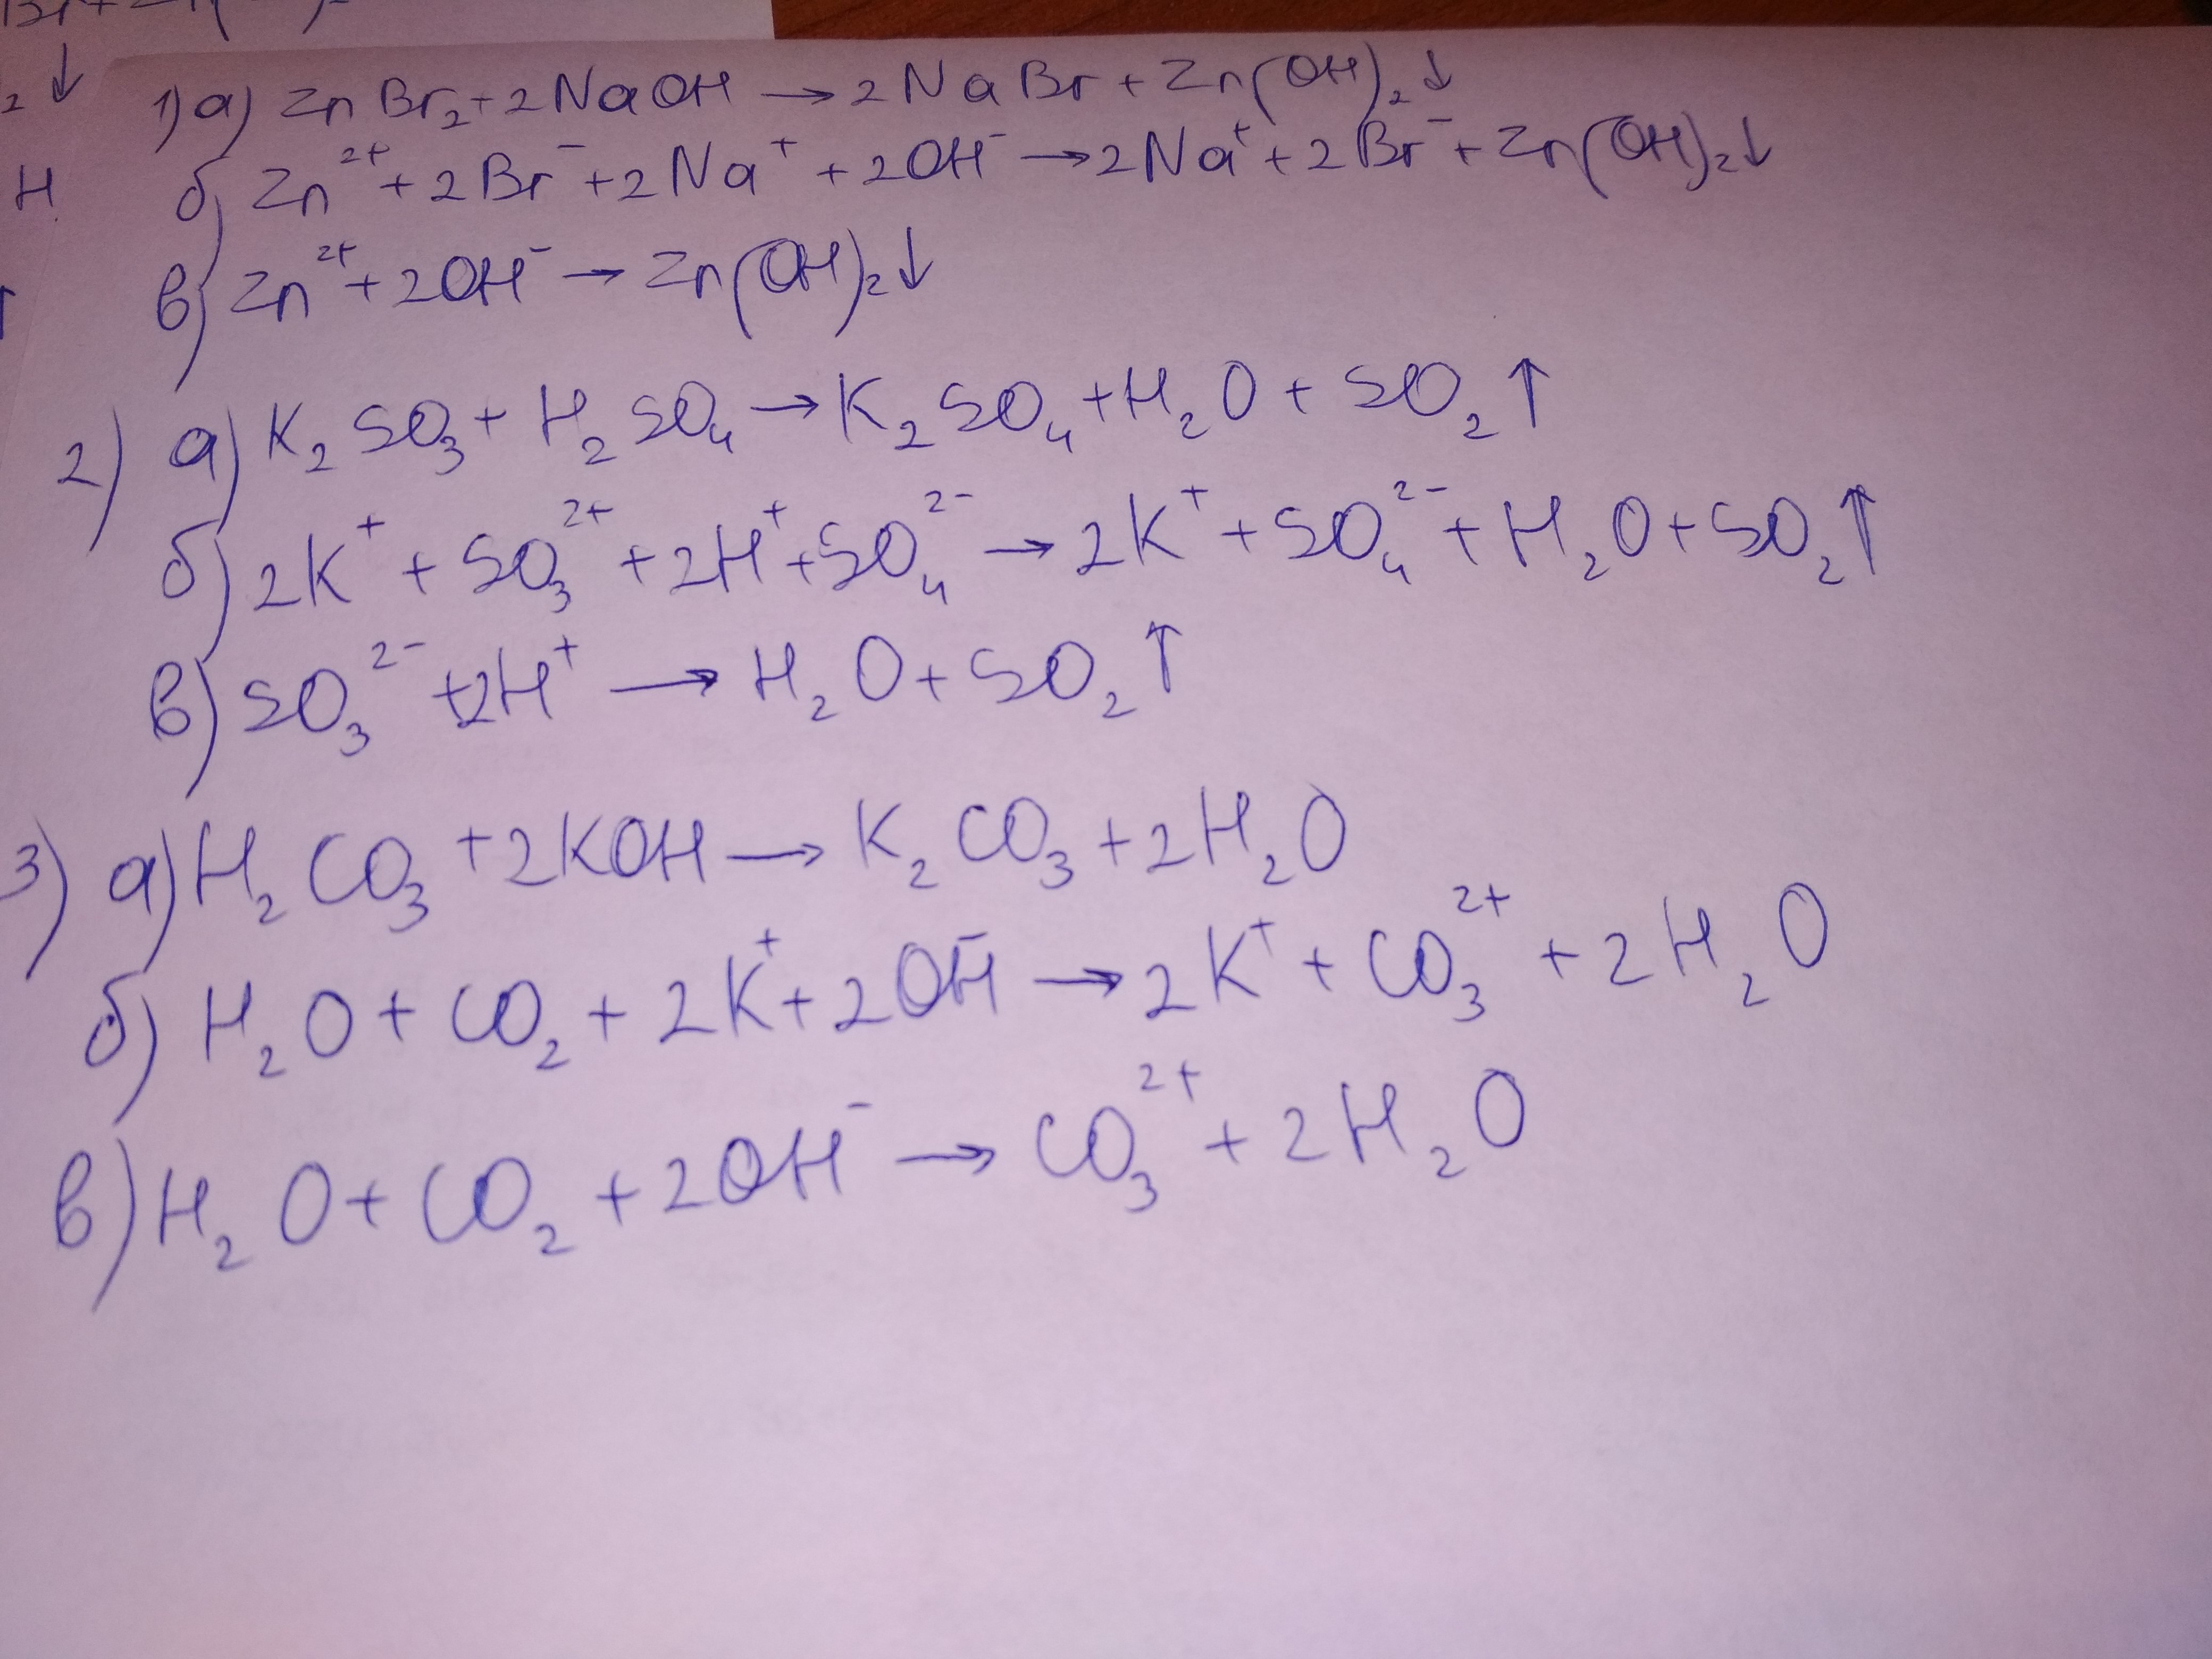 1) а) ZnBr₂ + 2NaOH → 2NaBr + Zn(OH)₂↓
б) Zn²⁺ + 2Br⁻ + 2Na⁺ + 2OH⁻ → 2Na⁺ + 2Br⁻ + Zn(OH)₂↓
в) Zn²⁺ + 2OH⁻ → Zn(OH)₂↓
2) а) K₂SO₃ + H₂SO₄ → K₂SO₄ + H₂O + SO₂↑
б) 2K⁺ + SO₃²⁺ + 2H⁺ + SO₄²⁻ → 2K⁺ + SO₄²⁻ + H₂O + SO₂↑
в) SO₃²⁻ + 2H⁺ → H₂O + SO₂↑
3) а) H₂CO₃ + 2KOH → K₂CO₃ + 2H₂O
б) H₂O + CO₂ + 2K⁺ + 2OH⁻ → 2K⁺ + CO₃²⁺ + 2H₂O
в) H₂O + CO₂ + 2OH⁻ → CO₃²⁺ + 2H₂O